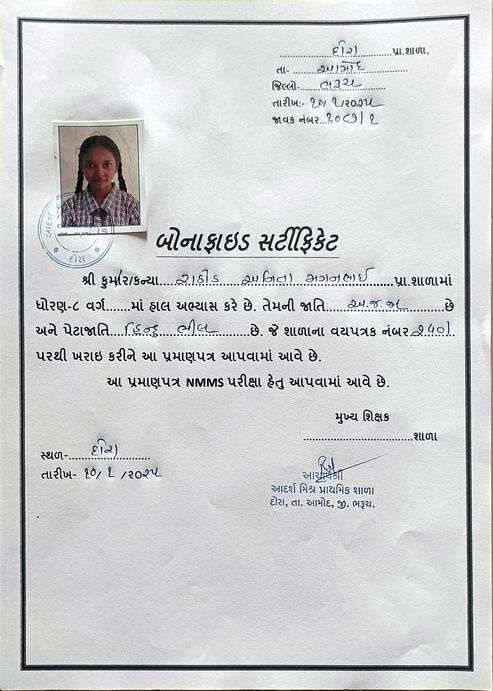 દોરા પ્રા.શાળા,
તા- આમોદ
જિલ્લો- ભરૂચ
તારીખ:- ૧૦/૧/૨૦૨૫
જાવક નંબર ૧૦૭/૧
દોરા
બોનાફાઇડ સર્ટીફિકેટ
શ્રી કુમાર/કન્યા રાઠોડ અનિતા મગનભાઈ પ્રા.શાળામાં
ધોરણ-૮ વર્ગ......માં હાલ અભ્યાસ કરે છે. તેમની જાતિ અ.જ.જા છે
અને પેટાજાતિ હિન્દુ ભીલ છે. જે શાળાના વયપત્રક નંબર
પરથી ખરાઇ કરીને આ પ્રમાણપત્ર આપવામાં આવે છે.
આ પ્રમાણપત્ર NMMS પરીક્ષા હેતુ આપવામાં આવે છે.
મુખ્ય શિક્ષક
શાળા
સ્થળ- દોરા
તારીખ- ૧૦/૧/૨૦૨૫
આચાર્યશ્રી
આદર્શ મિશ્ર પ્રાથમિક શાળા
દોરા, તા. આમોદ, જી. ભરૂચ.